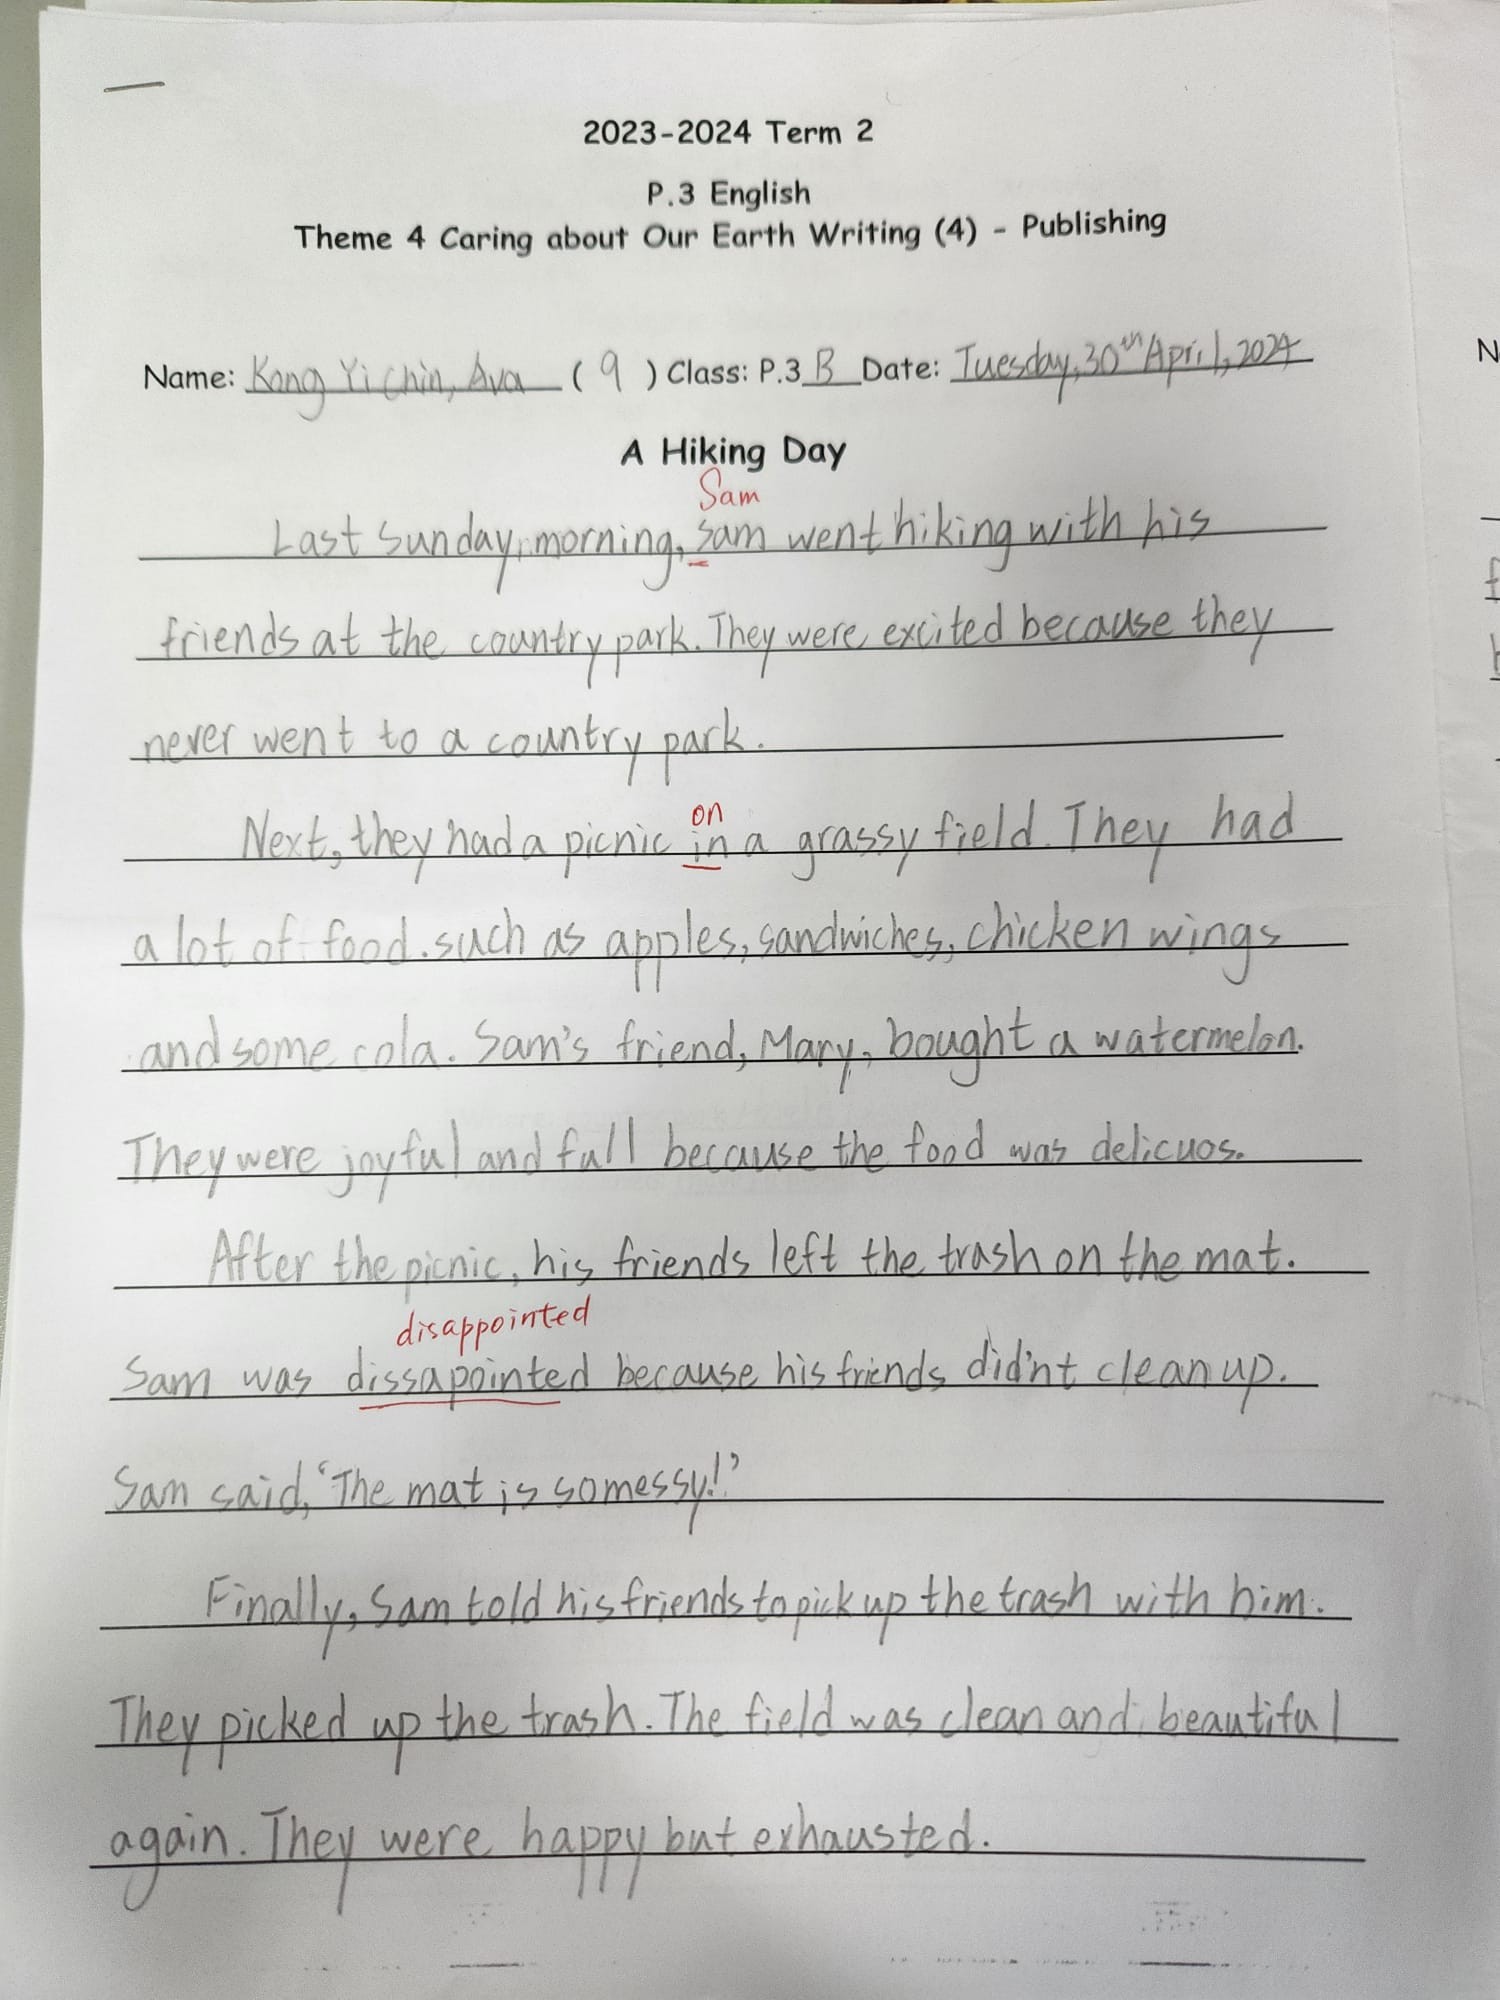 2023-2024 Term 2
P.3 English
Theme 4 Caring about Our Earth Writing (4) - Publishing
Name: Kong Yi Chin, Ava (9) Class: P.3 B Date: Tuesday, 30th April, 2024
A Hiking Day
Sam
Last Sunday, morning, sam went hiking with his
friends at the country park. They were excited because they
never went to a country park.
on
Next, they had a picnic in a grassy field. They had
a lot of food. such as apples, sandwiches, chicken wings
and some cola. Sam's friend, Mary, bought a watermelon.
They were joyful and full because the food was delicuos.
After the picnic, his friends left the trash on the mat.
disappointed
Sam was dissapointed because his friends did'nt clean up.
Sam said, 'The mat is so messy!'
Finally, Sam told his friends to pick up the trash with him.
They picked up the trash. The field was clean and beautiful
again. They were happy but exhausted.